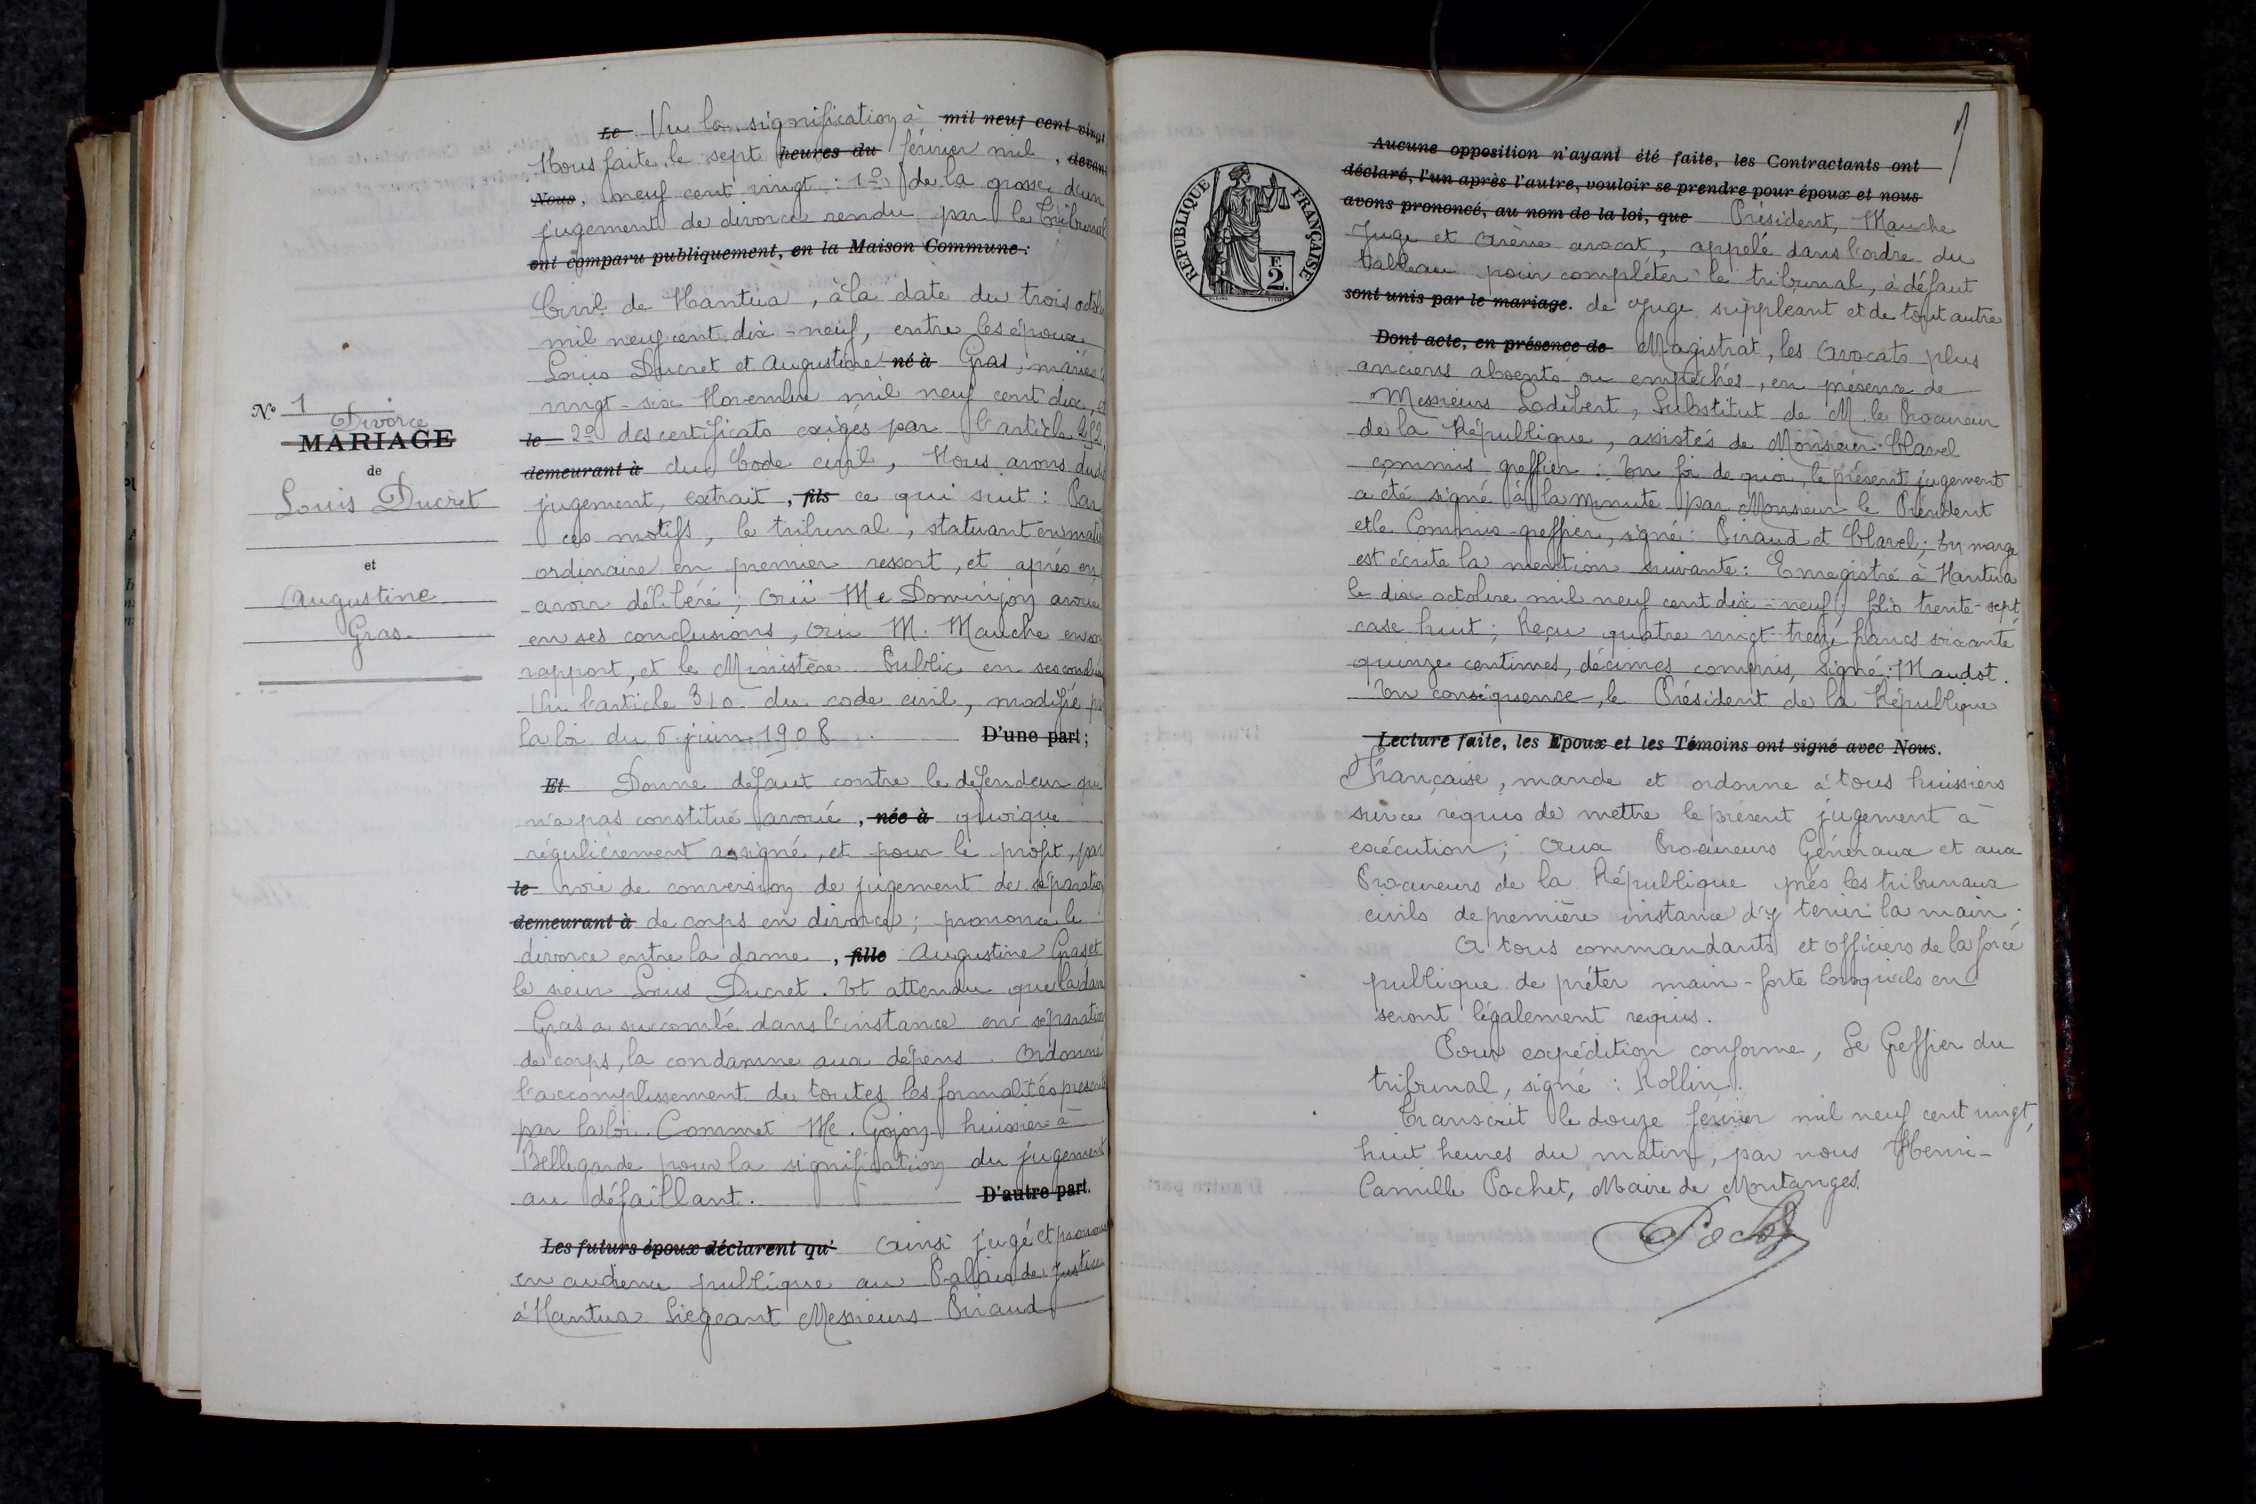 N° 1
Divorce
MARIAGE
de
Louis Ducret
et
Augustine
Gras
Le Vu la signification à mil neuf cent vingt
Nous faite le sept heures du février mil, devant
Nous, neuf cent vingt : 1° de la grosse d'un
jugement de divorce rendu par le Tribunal
ont comparu publiquement, en la Maison Commune :
Civil de Nantua, à la date du trois octobre
mil neuf cent dix-neuf, entre les époux
Louis Ducret et Augustine né à Gras, mariés
vingt-six Novembre mil neuf cent dix, et
le 2° des certificats exigés par l'article 252
demeurant à du Code civil, Nous avons dudit
jugement, extrait, fils ce qui suit : Par
ces motifs, le tribunal, statuant en matière
ordinaire en premier ressort, et après en
avoir délibéré ; Ouï Me Dominjon avoué
en ses conclusions, Ouï M. Mauche en son
rapport, et le Ministère Public en ses conclusions
Vu l'article 310 du code civil, modifié par
la loi du 6 juin 1908 D'une part ;
Et Donne défaut contre le défendeur qui
n'a pas constitué avoué, née à quoique
régulièrement assigné, et pour le profit, par
le voie de conversion de jugement de séparation
demeurant à de corps en divorce ; prononce le
divorce entre la dame, fille Augustine Gras et
le sieur Louis Ducret. Et attendu que la dame
Gras a succombé dans l'instance en séparation
de corps, la condamne aux dépens. Ordonne
l'accomplissement de toutes les formalités prescrites
par la loi. Commet Me. Gojon huissier à
Bellegarde pour la signification du jugement
au défaillant. D'autre part.
Les futurs époux déclarent qu' Ainsi jugé et prononcé
en audience publique au Palais de Justice
à Nantua Siégeant Messieurs Piraud
RÉPUBLIQUE FRANÇAISE
F.
2.
Aucune opposition n'ayant été faite, les Contractants ont
déclaré, l'un après l'autre, vouloir se prendre pour époux et nous
avons prononcé, au nom de la loi, que Président, Mauche
Juge et Arène avocat, appelé dans l'ordre du
tableau pour compléter le tribunal, à défaut
sont unis par le mariage. de Juge suppléant et de tout autre
Dont acte, en présence de Magistrat, les Avocats plus
anciens absents ou empêchés, en présence de
Messieurs Lodibert, Substitut de M. le Procureur
de la République, assistés de Monsieur Clavel
commis greffier : En foi de quoi, le présent jugement
a été signé à la minute par Monsieur le Président
et le Commis-greffier, signé : Piraud et Clavel ; En marge
est écrite la mention suivante : Enregistré à Nantua
le dix octobre mil neuf cent dix-neuf, folio trente-sept,
case huit ; Reçu quatre vingt-treize francs soixante
quinze centimes, décimes compris, Signé : Maudot.
En conséquence, le Président de la République
Lecture faite, les Epoux et les Témoins ont signé avec Nous.
Française, mande et ordonne à tous huissiers
sur ce requis de mettre le présent jugement à
exécution ; Aux Procureurs Généraux et aux
Procureurs de la République près les tribunaux
civils de première instance d'y tenir la main ;
A tous commandants et officiers de la force
publique de prêter main-forte lorsqu'ils en
seront légalement requis.
Pour expédition conforme, Le Greffier du
tribunal, signé : Rollin.
Transcrit le douze février mil neuf cent vingt,
huit heures du matin, par nous Henri-
Camille Pochet, Maire de Montanges.
Pochet